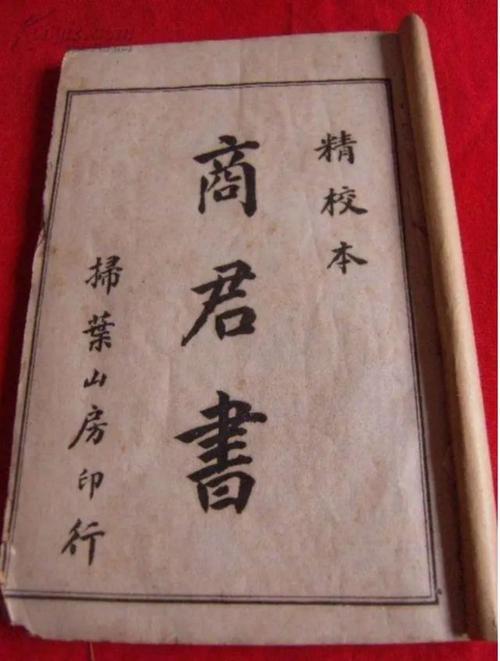 精校本
商君書
掃葉山房印行